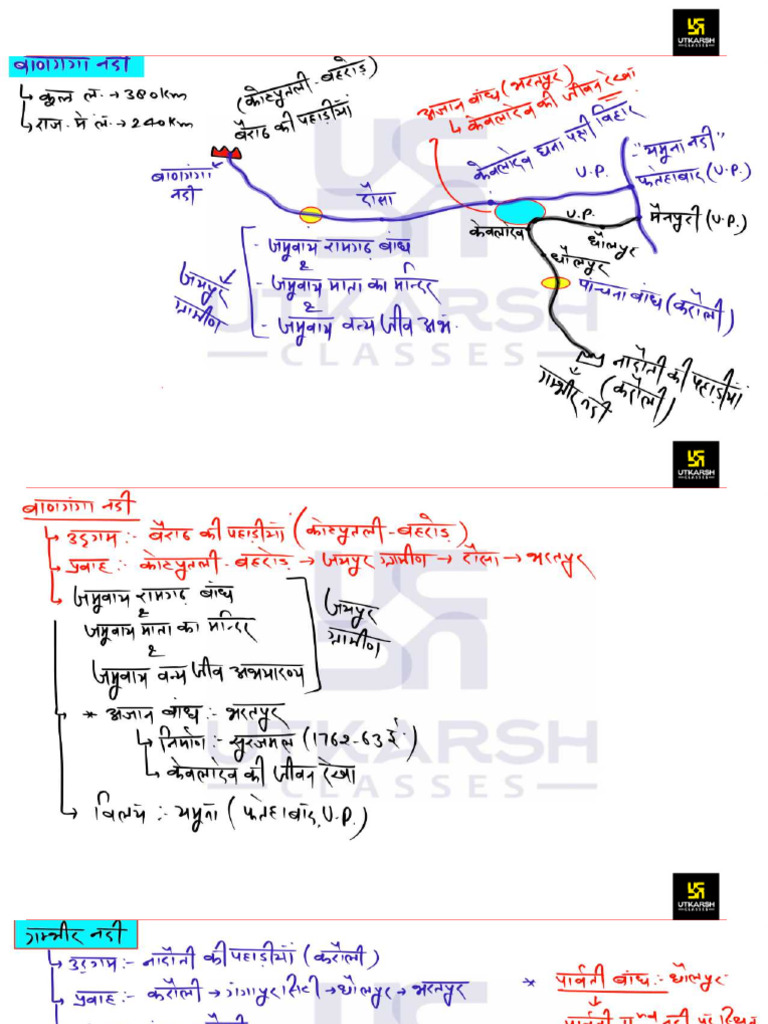 UTKARSH
CLASSES
बाणगंगा नदी
↳ कुल लं. → 380km
↳ राज. में लं. → 240km
(कोटपुतली-बहरोड़)
बैराठ की पहाड़ीयाँ
अजान बांध (भरतपुर)
↳ केवलादेव की जीवन रेखा
केवलादेव घना पक्षी विहार
बाणगंगा नदी
दौसा
U.P.
-"यमुना नदी"
फतेहाबाद (U.P.)
केवलादेव
U.P.
मैनपुरी (U.P.)
धौलपुर
धौलपुर
जयपुर ग्रामीण
- जमुवाय रामगढ़ बांध
&
- जमुवाय माता का मन्दिर
&
- जमुवाय वन्य जीव अभ.
पांचना बांध (करौली)
नादौती की पहाड़ीयाँ
(करौली)
गम्भीर नदी
UTKARSH
CLASSES
UTKARSH
CLASSES
बाणगंगा नदी
↳ उद्गम :- बैराठ की पहाड़ीयाँ (कोटपुतली-बहरोड़)
↳ प्रवाह :- कोटपुतली-बहरोड़ → जयपुर ग्रामीण → दौसा → भरतपुर
↳ जमुवाय रामगढ़ बांध
&
जमुवाय माता का मन्दिर
&
जमुवाय वन्य जीव अभ्यारण्य
जयपुर ग्रामीण
↳ * अजान बांध :- भरतपुर
↳ निर्माण :- सुरजमल (1762-63 ई.)
↳ केवलादेव की जीवन रेखा
↳ विलय :- यमुना (फतेहाबाद, U.P.)
UTKARSH
CLASSES
UTKARSH
CLASSES
गम्भीर नदी
↳ उद्गम :- नादौती की पहाड़ीयाँ (करौली)
↳ प्रवाह :- करौली → गंगापुर सिटी → धौलपुर → भरतपुर
* पार्वती बांध :- धौलपुर